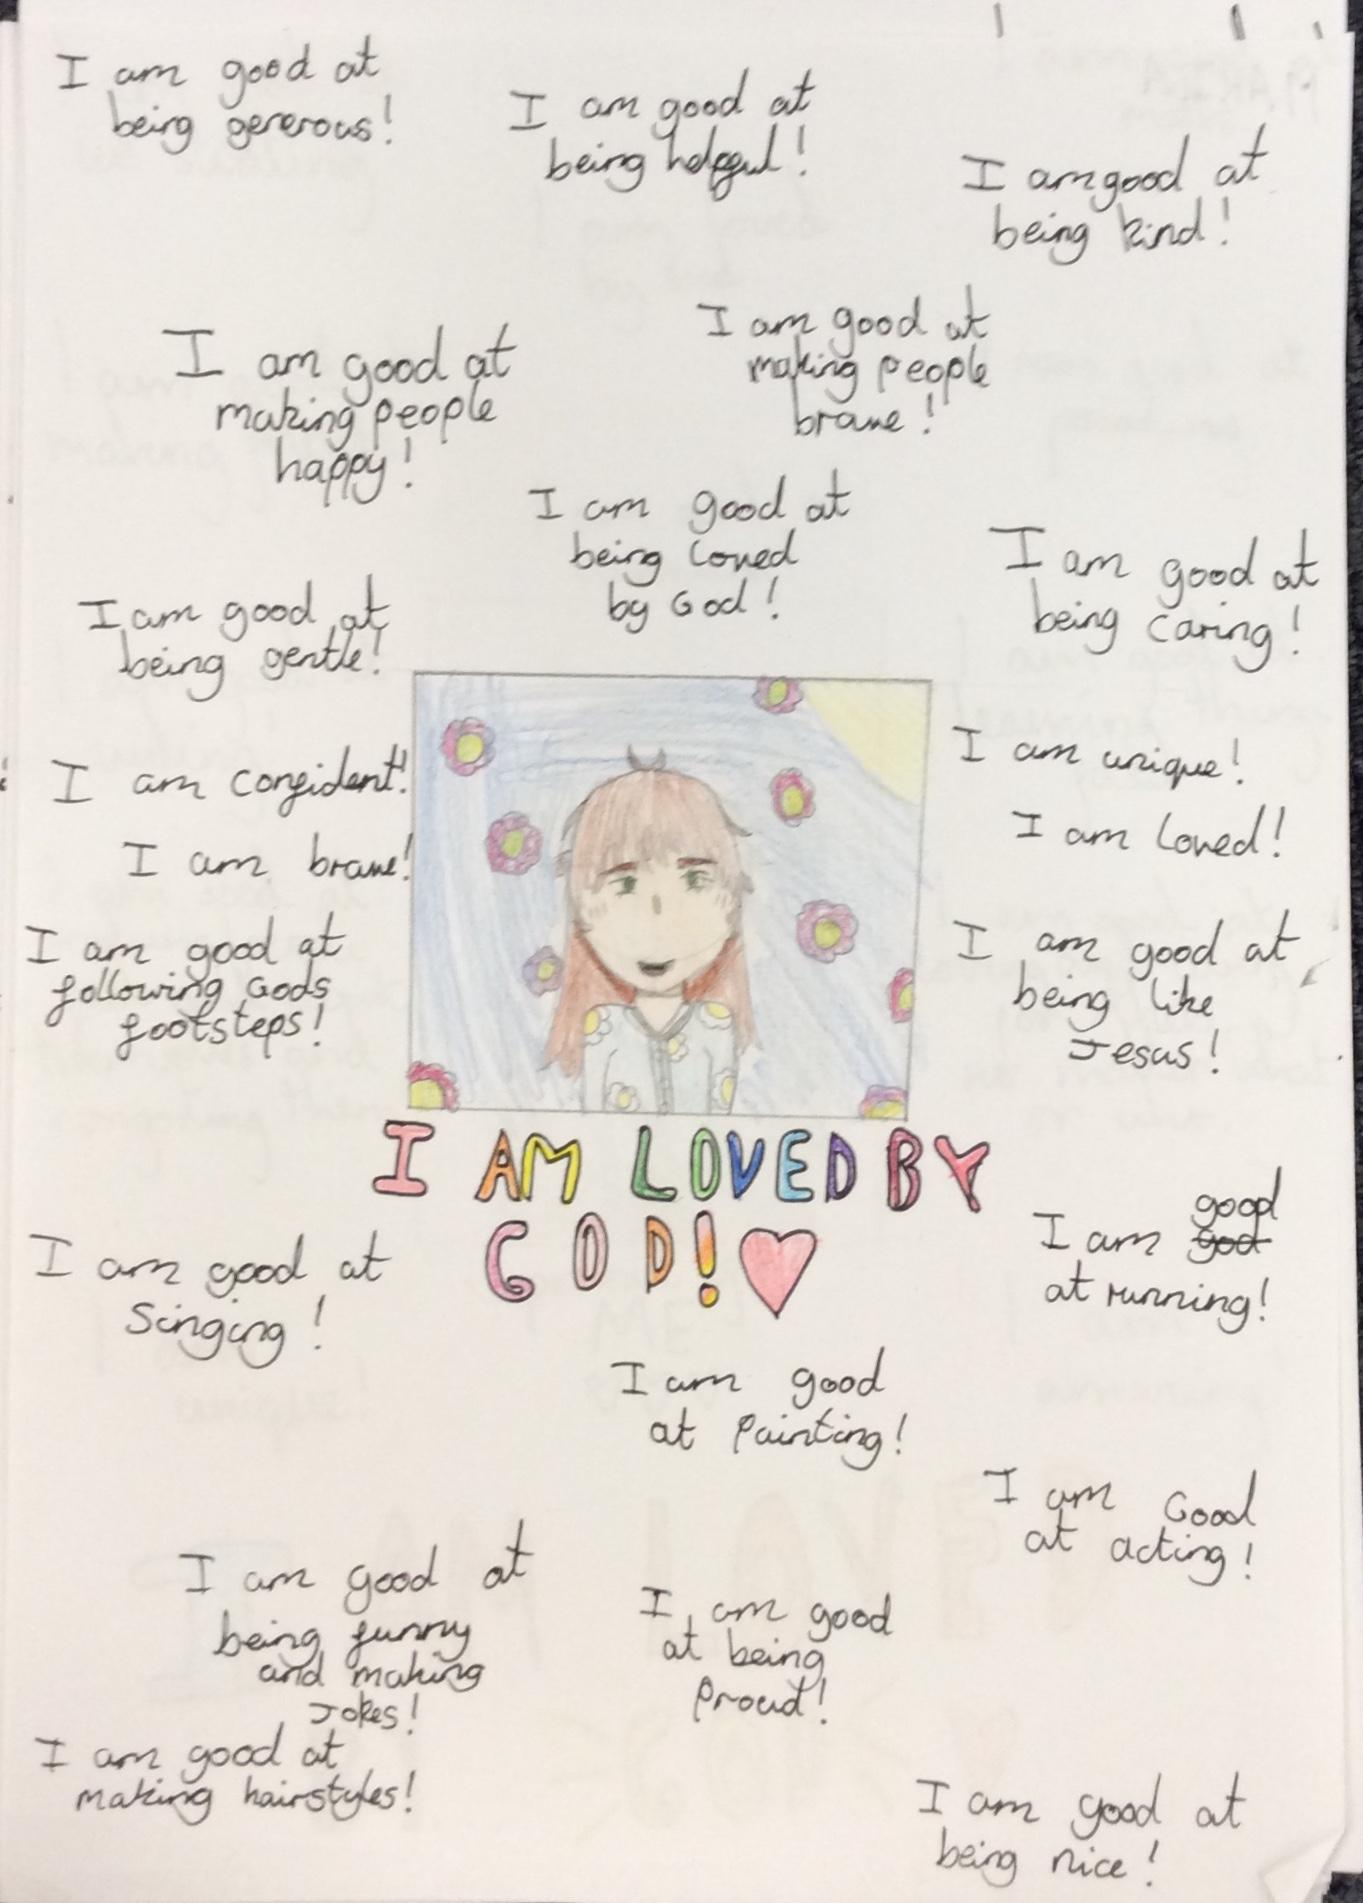 I am good at
being generous!
I am good at
being helpful!
I am good at
being kind!
I am good at
making people
happy!
I am good at
making people
brave!
I am good at
being loved
by God!
I am good at
being caring!
I am good at
being gentle!
I am confident!
I am brave!
I am good at
following Gods
footsteps!
I am unique!
I am loved!
I am good at
being like
Jesus!
I AM LOVED BY
GOD!
I am good at
Singing!
good
I am god
at running!
I am good
at Painting!
I am Good
at acting!
I am good at
being funny
and making
Jokes!
I am good
at being
Proud!
I am good at
making hairstyles!
I am good at
being nice!